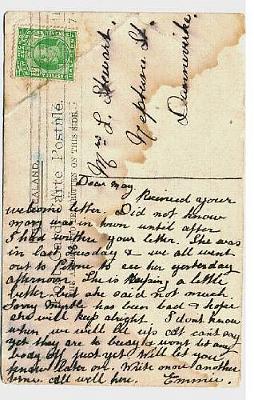 Mrs L. Stewart.
Neptune St
Dannevirke
Carte Postale
ON THIS SIDE
EALAND.
Dear May,
Received your
welcome letter. Did not know
mary was in town until after
I had written your letter. She was
in last Tuesday & we all went
out to Petone to see her yesterday
afternoon. She is keeping a little
better but she said not much.
Sorry Myrtle has been bad & hope
she will keep alright. I don't know
when we will be up cant say
yet they are to busy & wont let any
body off just yet. Will let you
know later on. Write soon another
time all well here. Emmie.